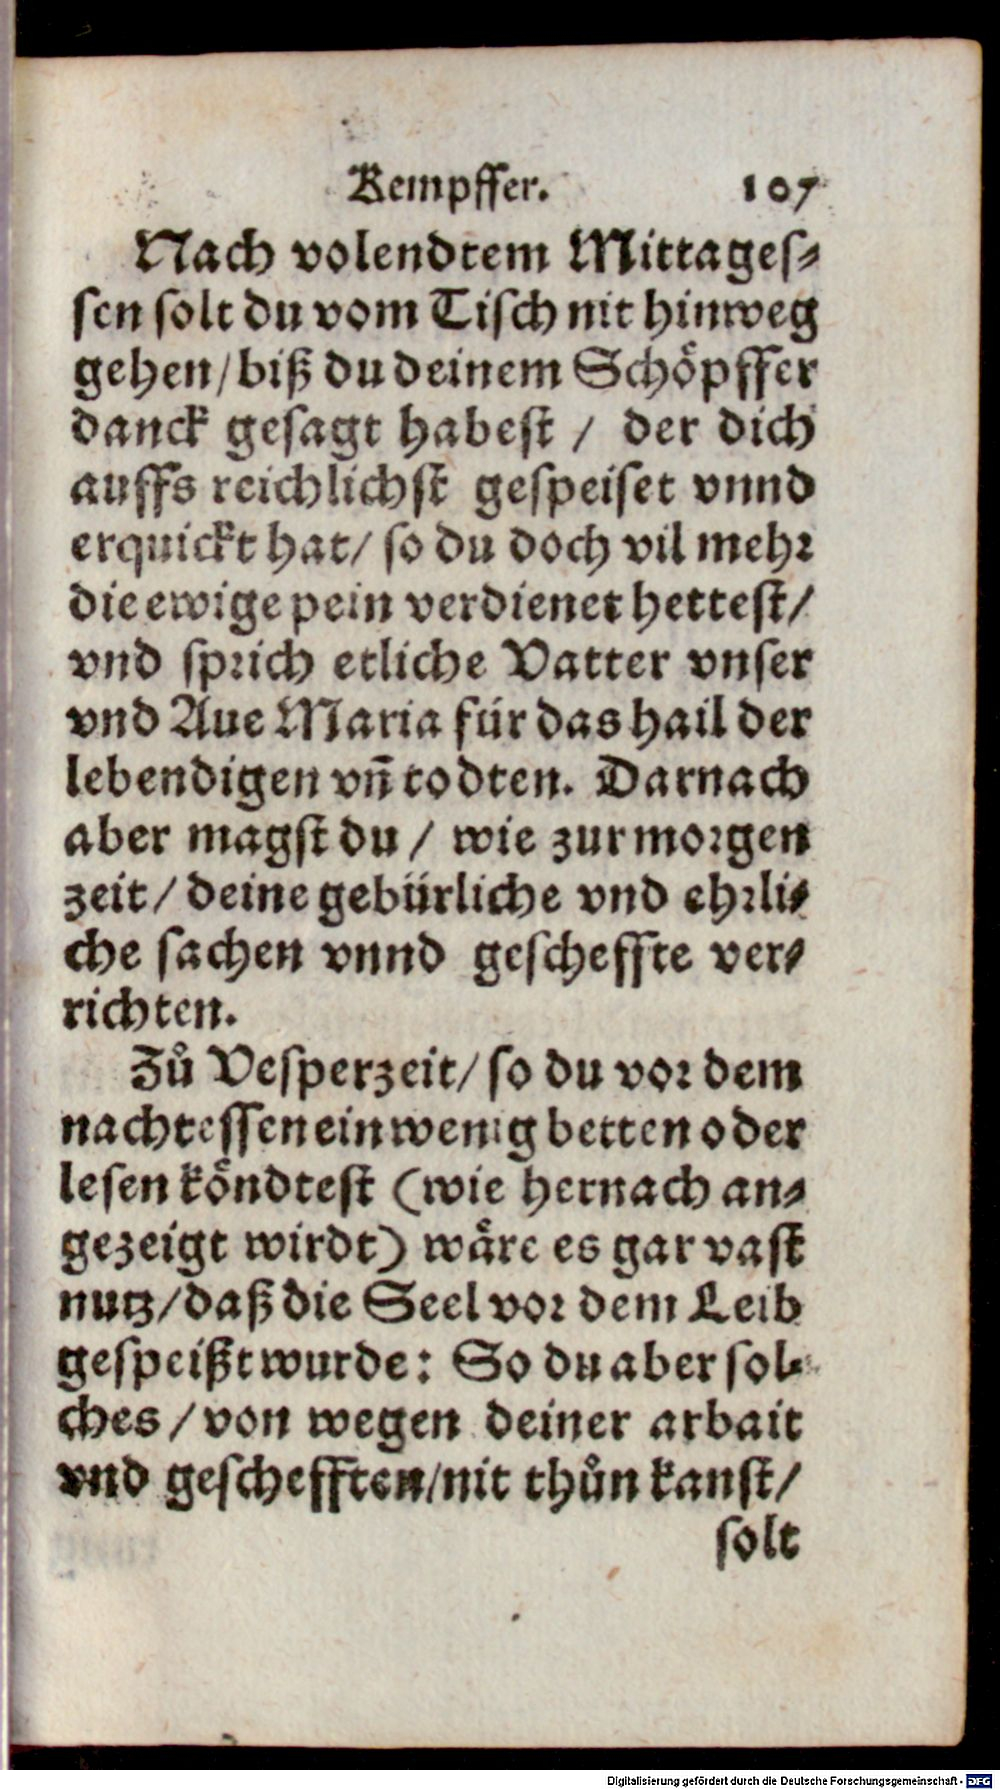 Kempffer. 107
Nach volendtem Mittages⸗
sen solt du vom Tisch nit hinweg
gehen/ biß du deinem Schoͤpffer
danck gesagt habest / der dich
auffs reichlichst gespeiset vnnd
erquickt hat/ so du doch vil mehr
die ewige pein verdienet hettest/
vnd sprich etliche Vatter vnser
vnd Aue Maria für das hail der
lebendigen vn̄ todten. Darnach
aber magst du / wie zur morgen
zeit / deine gebürliche vnd ehrli⸗
che sachen vnnd gescheffte ver⸗
richten.
Zů Vesperzeit/ so du vor dem
nachtessen ein wenig betten oder
lesen koͤndtest (wie hernach an⸗
gezeigt wirdt) waͤre es gar vast
nutz/daß die Seel vor dem Leib
gespeißt wurde: So du aber sol⸗
ches / von wegen deiner arbait
vnd geschefften/nit thůn kanst/
solt
Digitalisierung gefördert durch die Deutsche Forschungsgemeinschaft - DFG